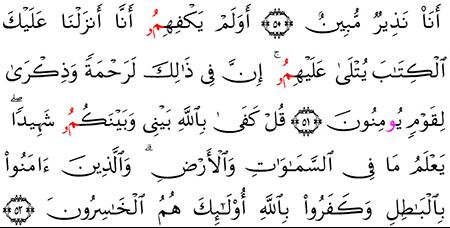 أَنَا۠ نَذِيرٌ مُّبِينٌ ۝٥٠ أَوَلَمْ يَكْفِهِمُۥ أَنَّا أَنزَلْنَا عَلَيْكَ
ٱلْكِتَٰبَ يُتْلَىٰ عَلَيْهِمُۥٓ ۚ إِنَّ فِى ذَٰلِكَ لَرَحْمَةً وَذِكْرَىٰ
لِقَوْمٍ يُومِنُونَ ۝٥١ قُلْ كَفَىٰ بِٱللَّهِ بَيْنِى وَبَيْنَكُمُۥ شَهِيدًا ۖ
يَعْلَمُ مَا فِى ٱلسَّمَٰوَٰتِ وَٱلْأَرْضِ ۗ وَٱلَّذِينَ ءَامَنُوا۟
بِٱلْبَٰطِلِ وَكَفَرُوا۟ بِٱللَّهِ أُو۟لَٰٓئِكَ هُمُ ٱلْخَٰسِرُونَ ۝٥٢